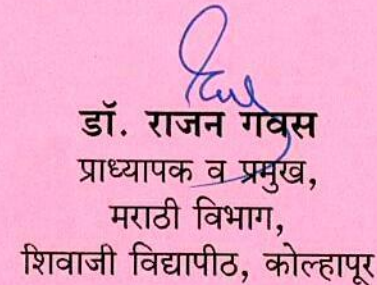 डॉ. राजन गवस
प्राध्यापक व प्रमुख,
मराठी विभाग,
शिवाजी विद्यापीठ, कोल्हापूर